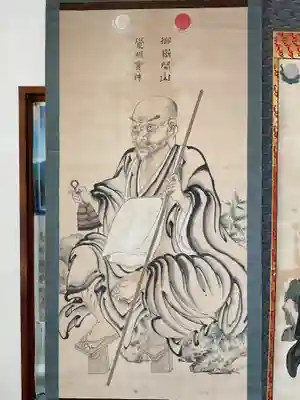 御嶽開山
覺明霊神